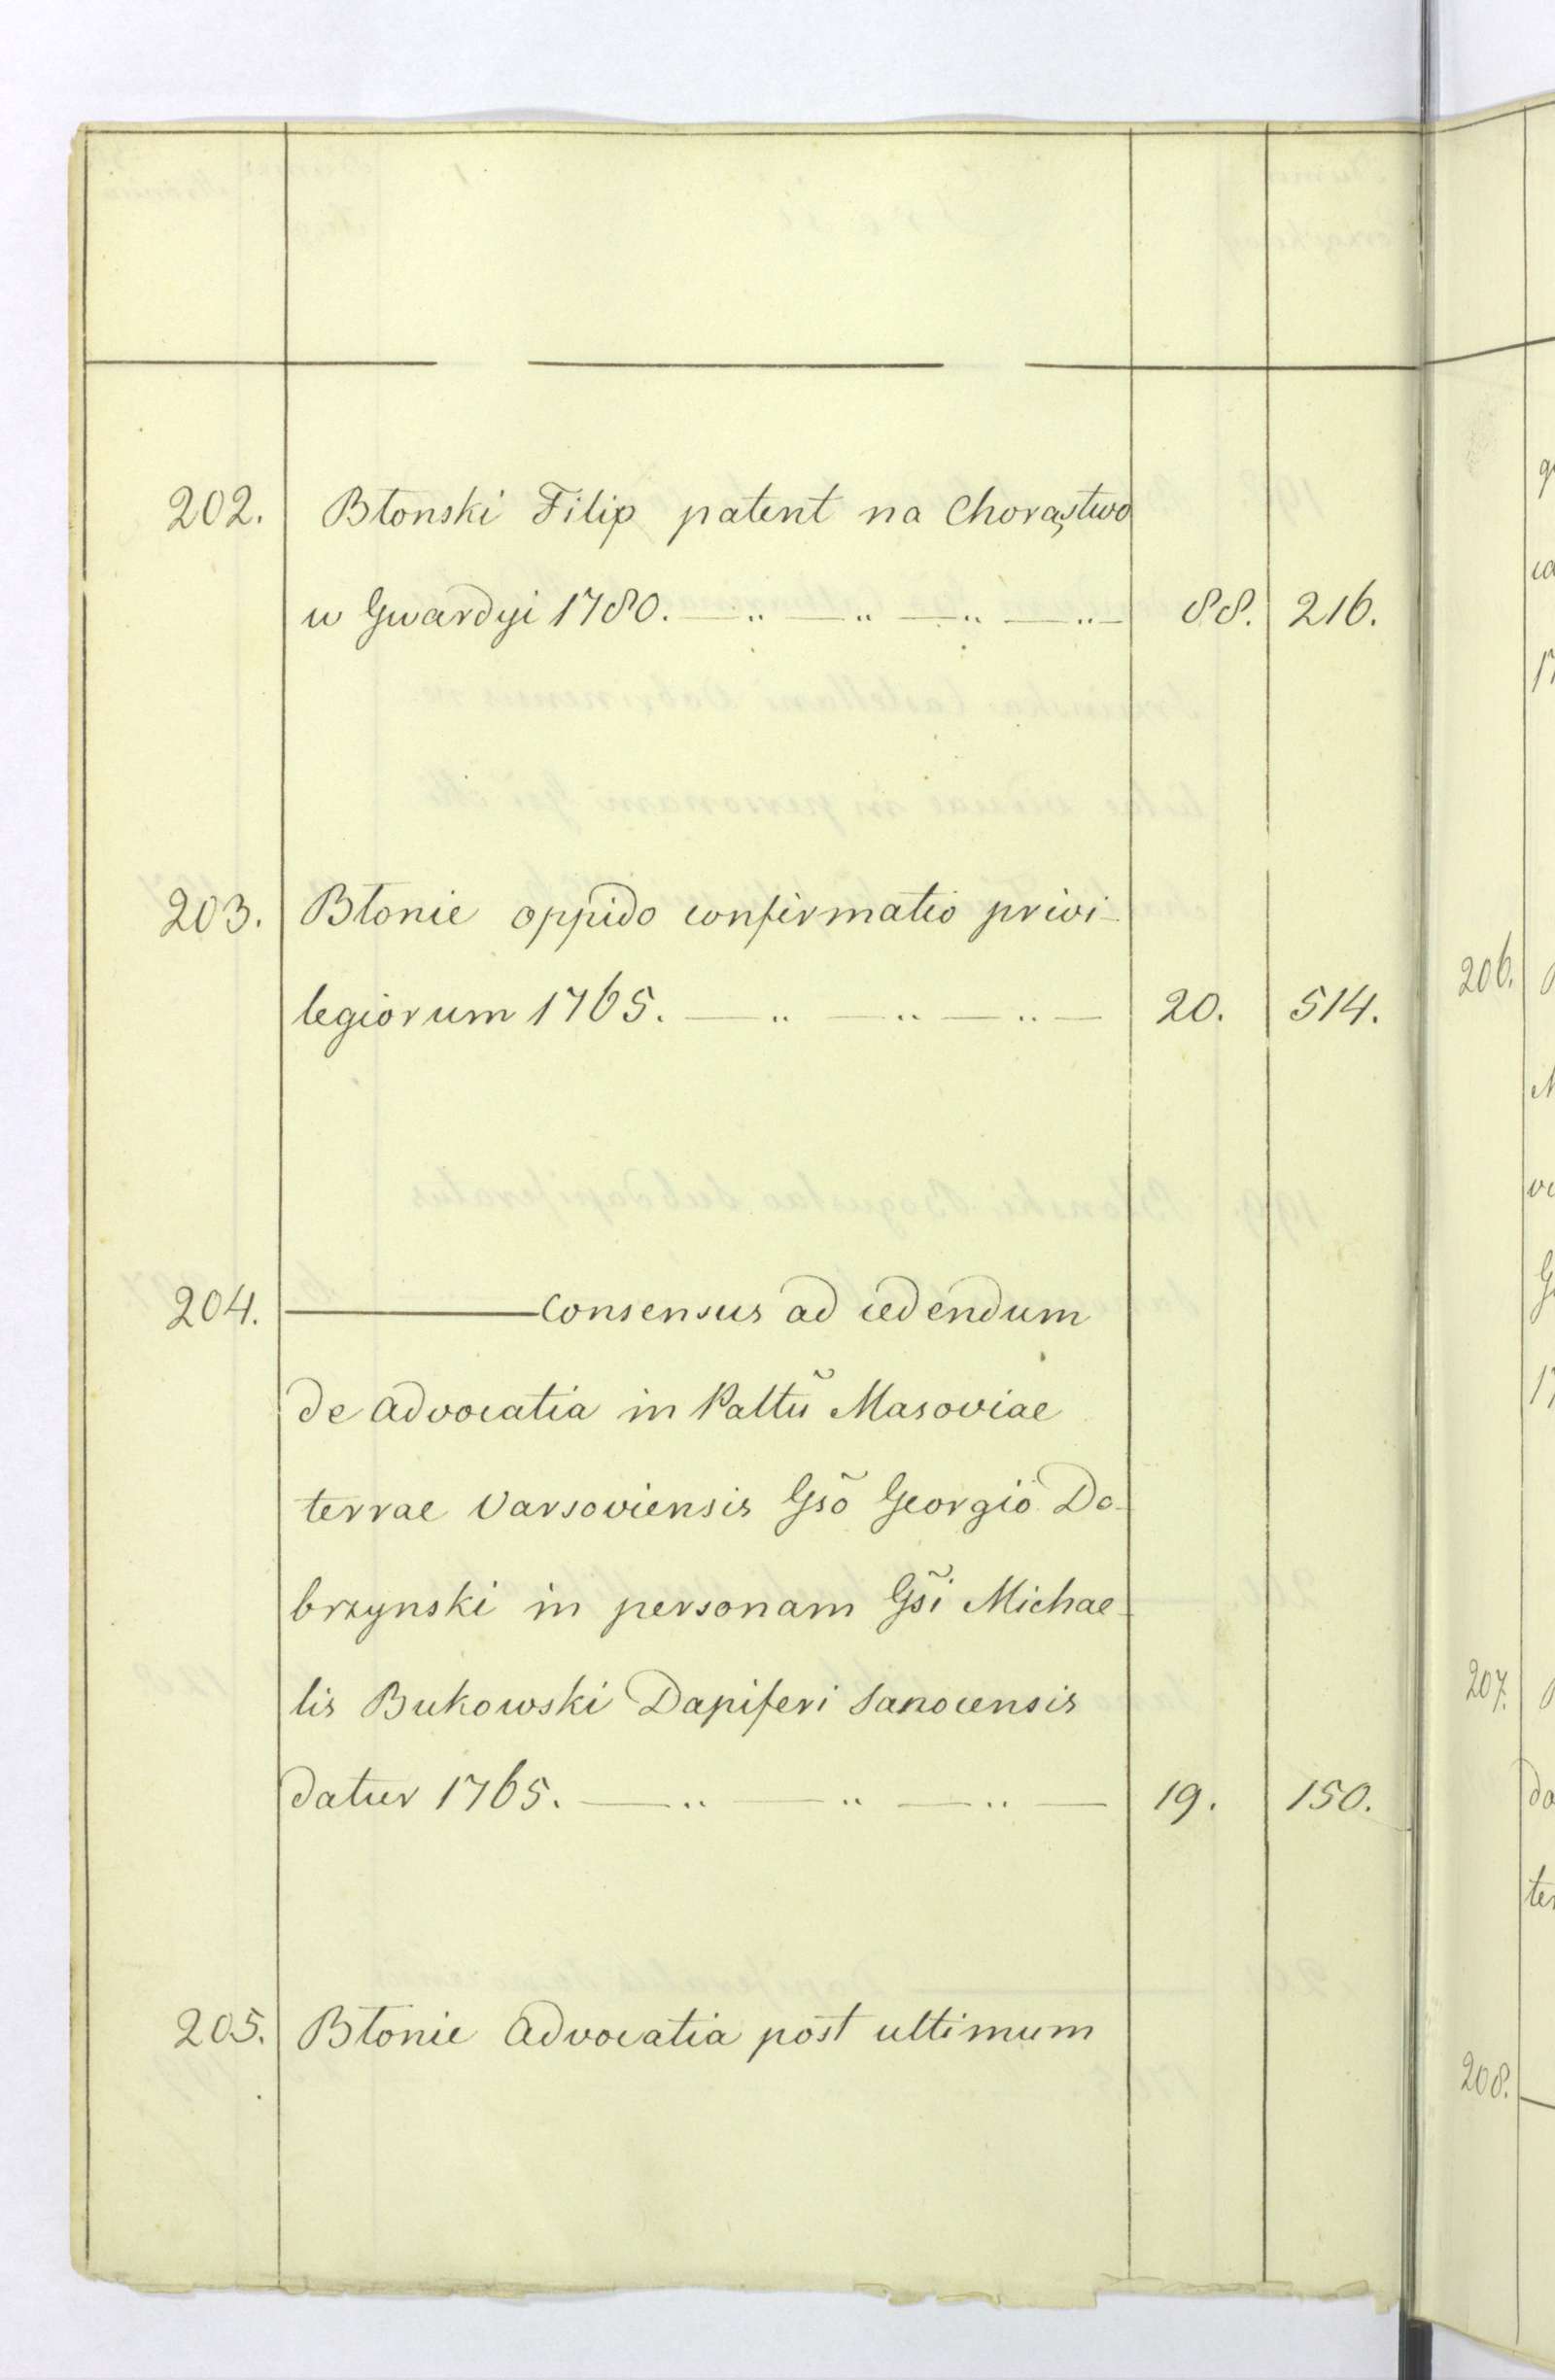 202. Błonski Filip patent na Chorąstwo
w Gwardyi 1780. 88. 216.
203. Błonie oppido confirmatio privi-
legiorum 1765. 20. 514.
204. ——— Consensus ad cedendum
de advocatia in Paltũ Masoviae
terrae Varsoviensis Gsõ Georgio Do-
brzynski in personam Gs̃i Michae-
lis Bukowski Dapiferi Sanocensis
datur 1765. 19. 150.
205. Błonie advocatia post ultimum
206.
207.
208.